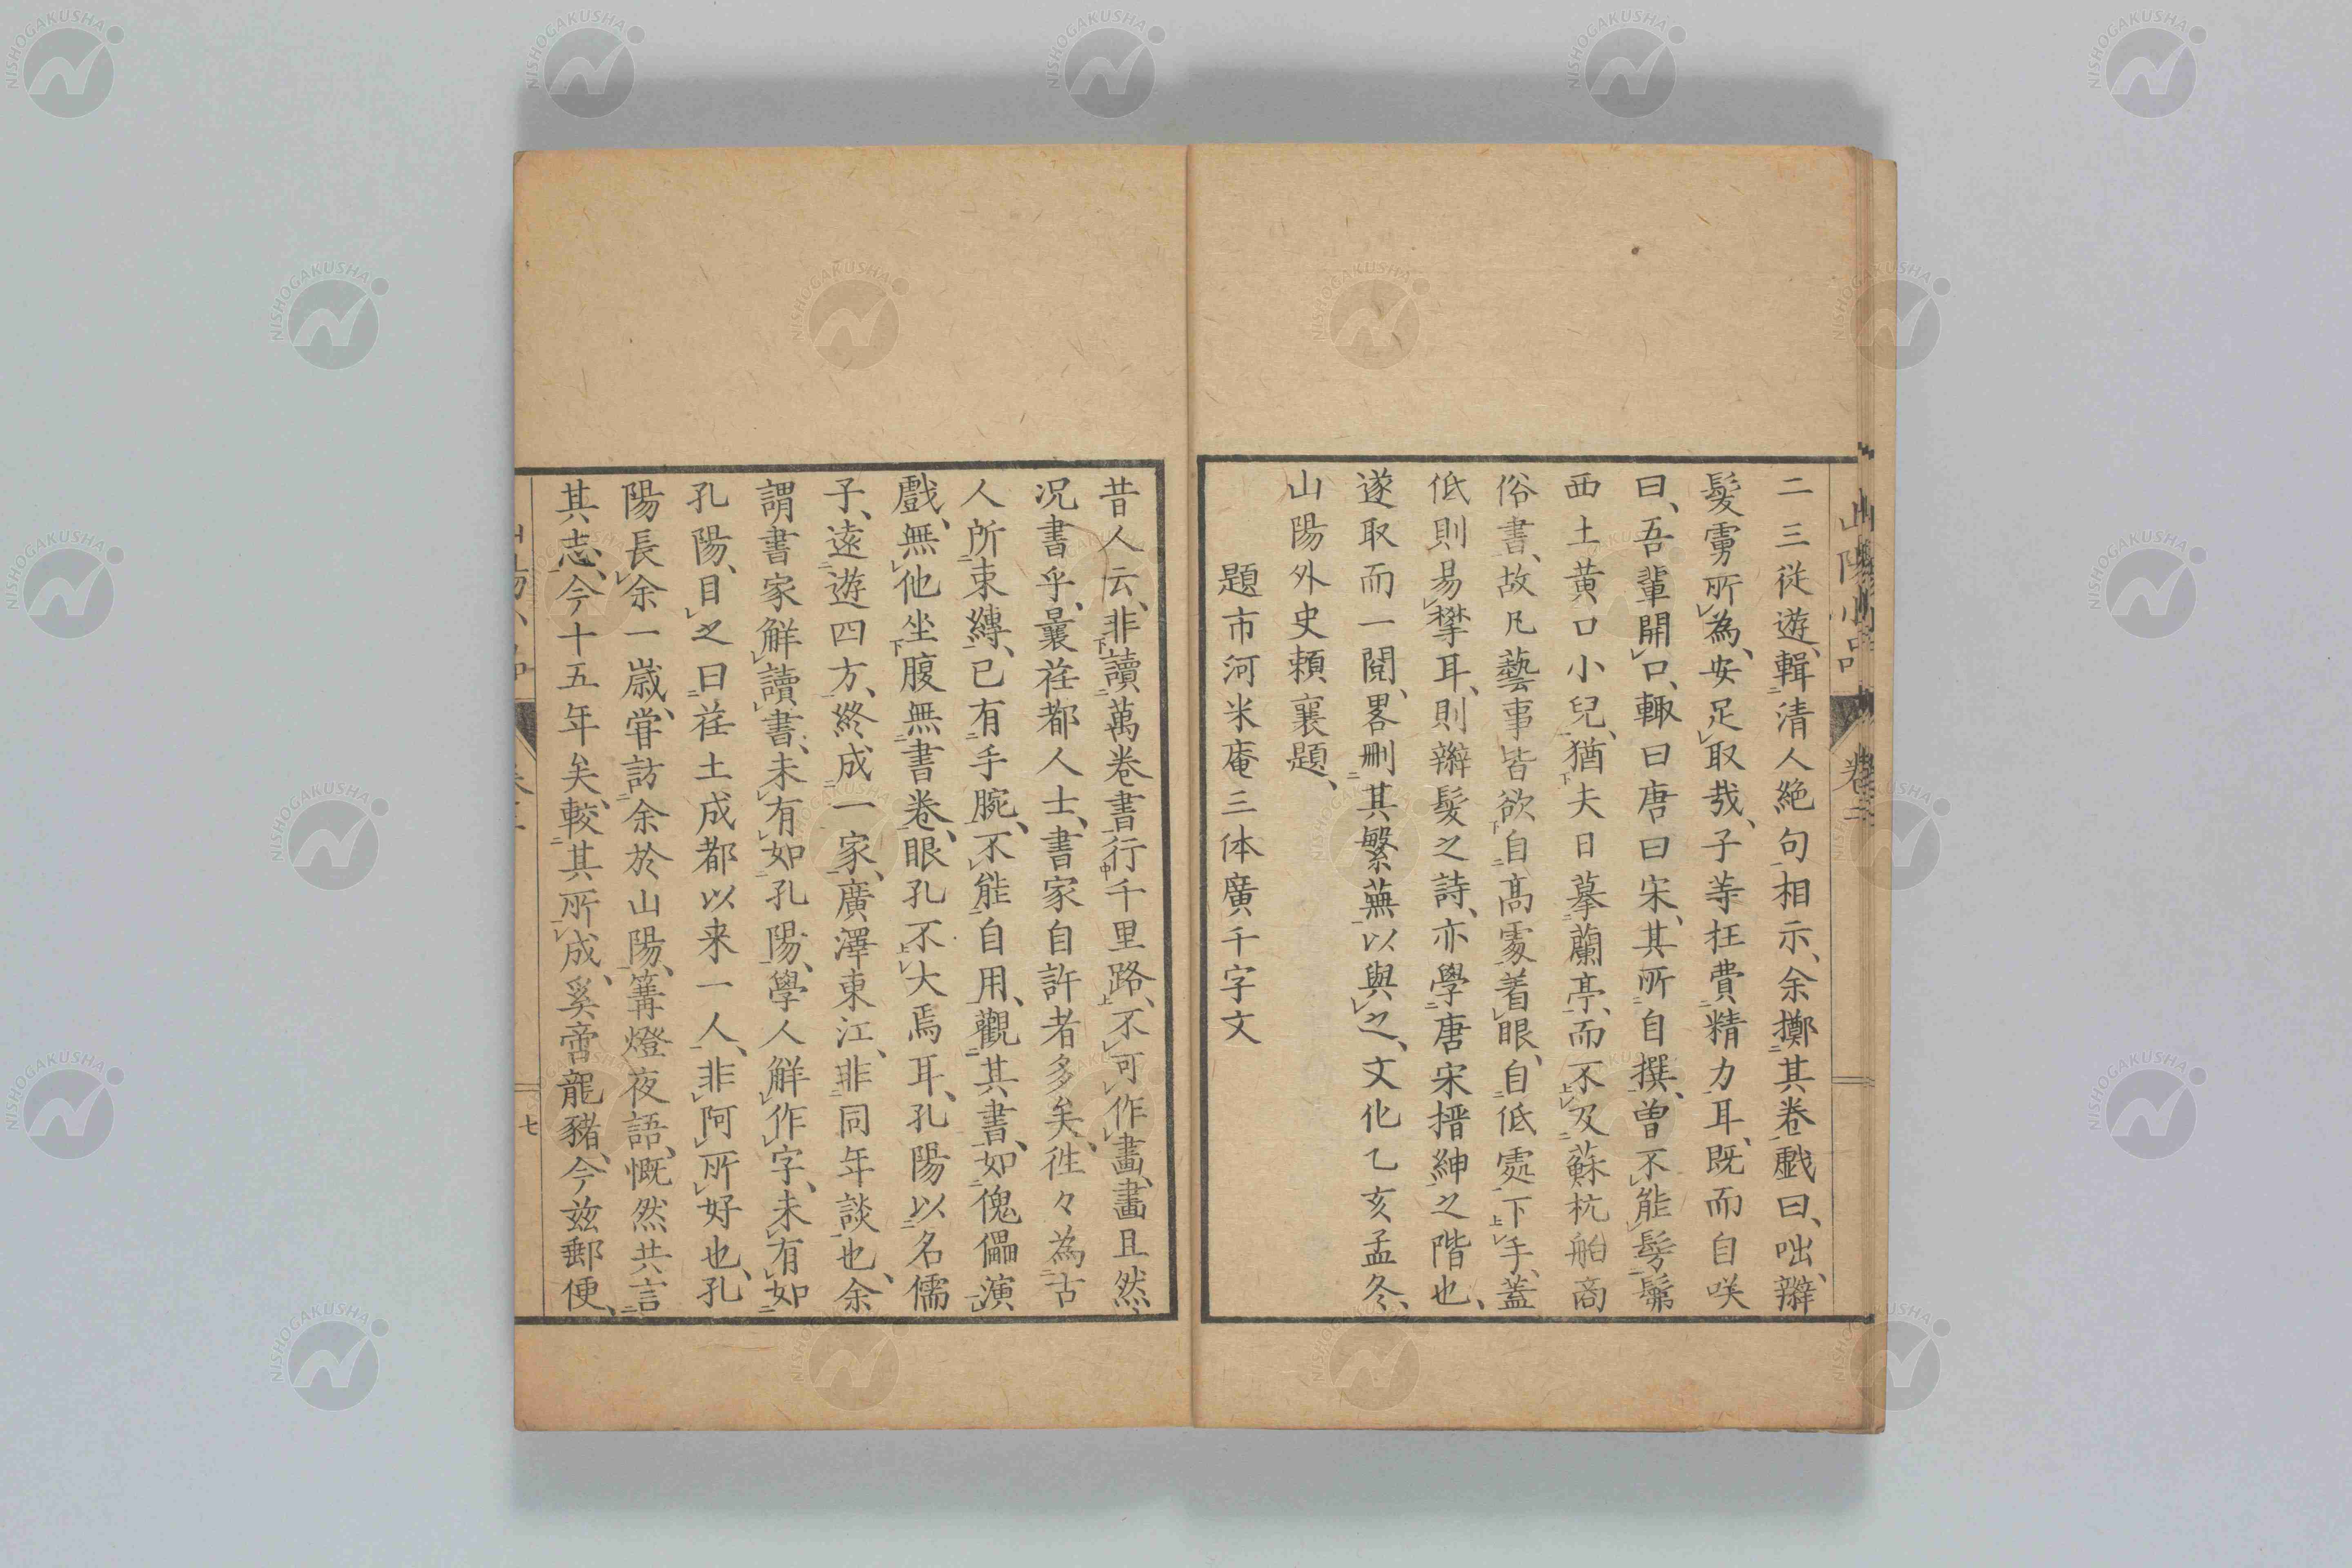 山陽小品 卷二
二三従遊、輯清人絶句相示、余擲其卷戯曰、咄、辮
髮虜所為、安足取哉、子等枉費精力耳、既而自咲
曰、吾輩開口、輙曰唐曰宋、其所自撰、曽不能髣髴
西土黄口小兒、猶夫日摹蘭亭、而不及蘇杭舶商
俗書、故凡藝事皆欲自髙處着眼、自低處下手、蓋
低則易攀耳、則辮髮之詩、亦學唐宋搢紳之階也、
遂取而一閲、畧刪其繁蕪以與之、文化乙亥孟冬、
山陽外史頼襄題、
題市河米庵三体廣千字文
昔人云、非讀萬卷書行千里路、不可作畫、畫且然、
况書乎、曩在都人士、書家自許者多矣、徃々為古
人所束縛、已有手腕、不能自用、觀其書、如傀儡演
戲、無他坐腹無書卷、眼孔不大焉耳、孔陽以名儒
子、遠遊四方、終成一家、廣澤東江、非同年談也、余
謂書家鮮讀書、未有如孔陽、學人鮮作字、未有如
孔陽、目之曰在土成都以来一人、非阿所好也、孔
陽長余一歳、甞訪余於山陽、篝燈夜語、慨然共言
其志、今十五年矣、較其所成、奚啻龍豬、今茲郵便、
七
NISHOGAKUSHA